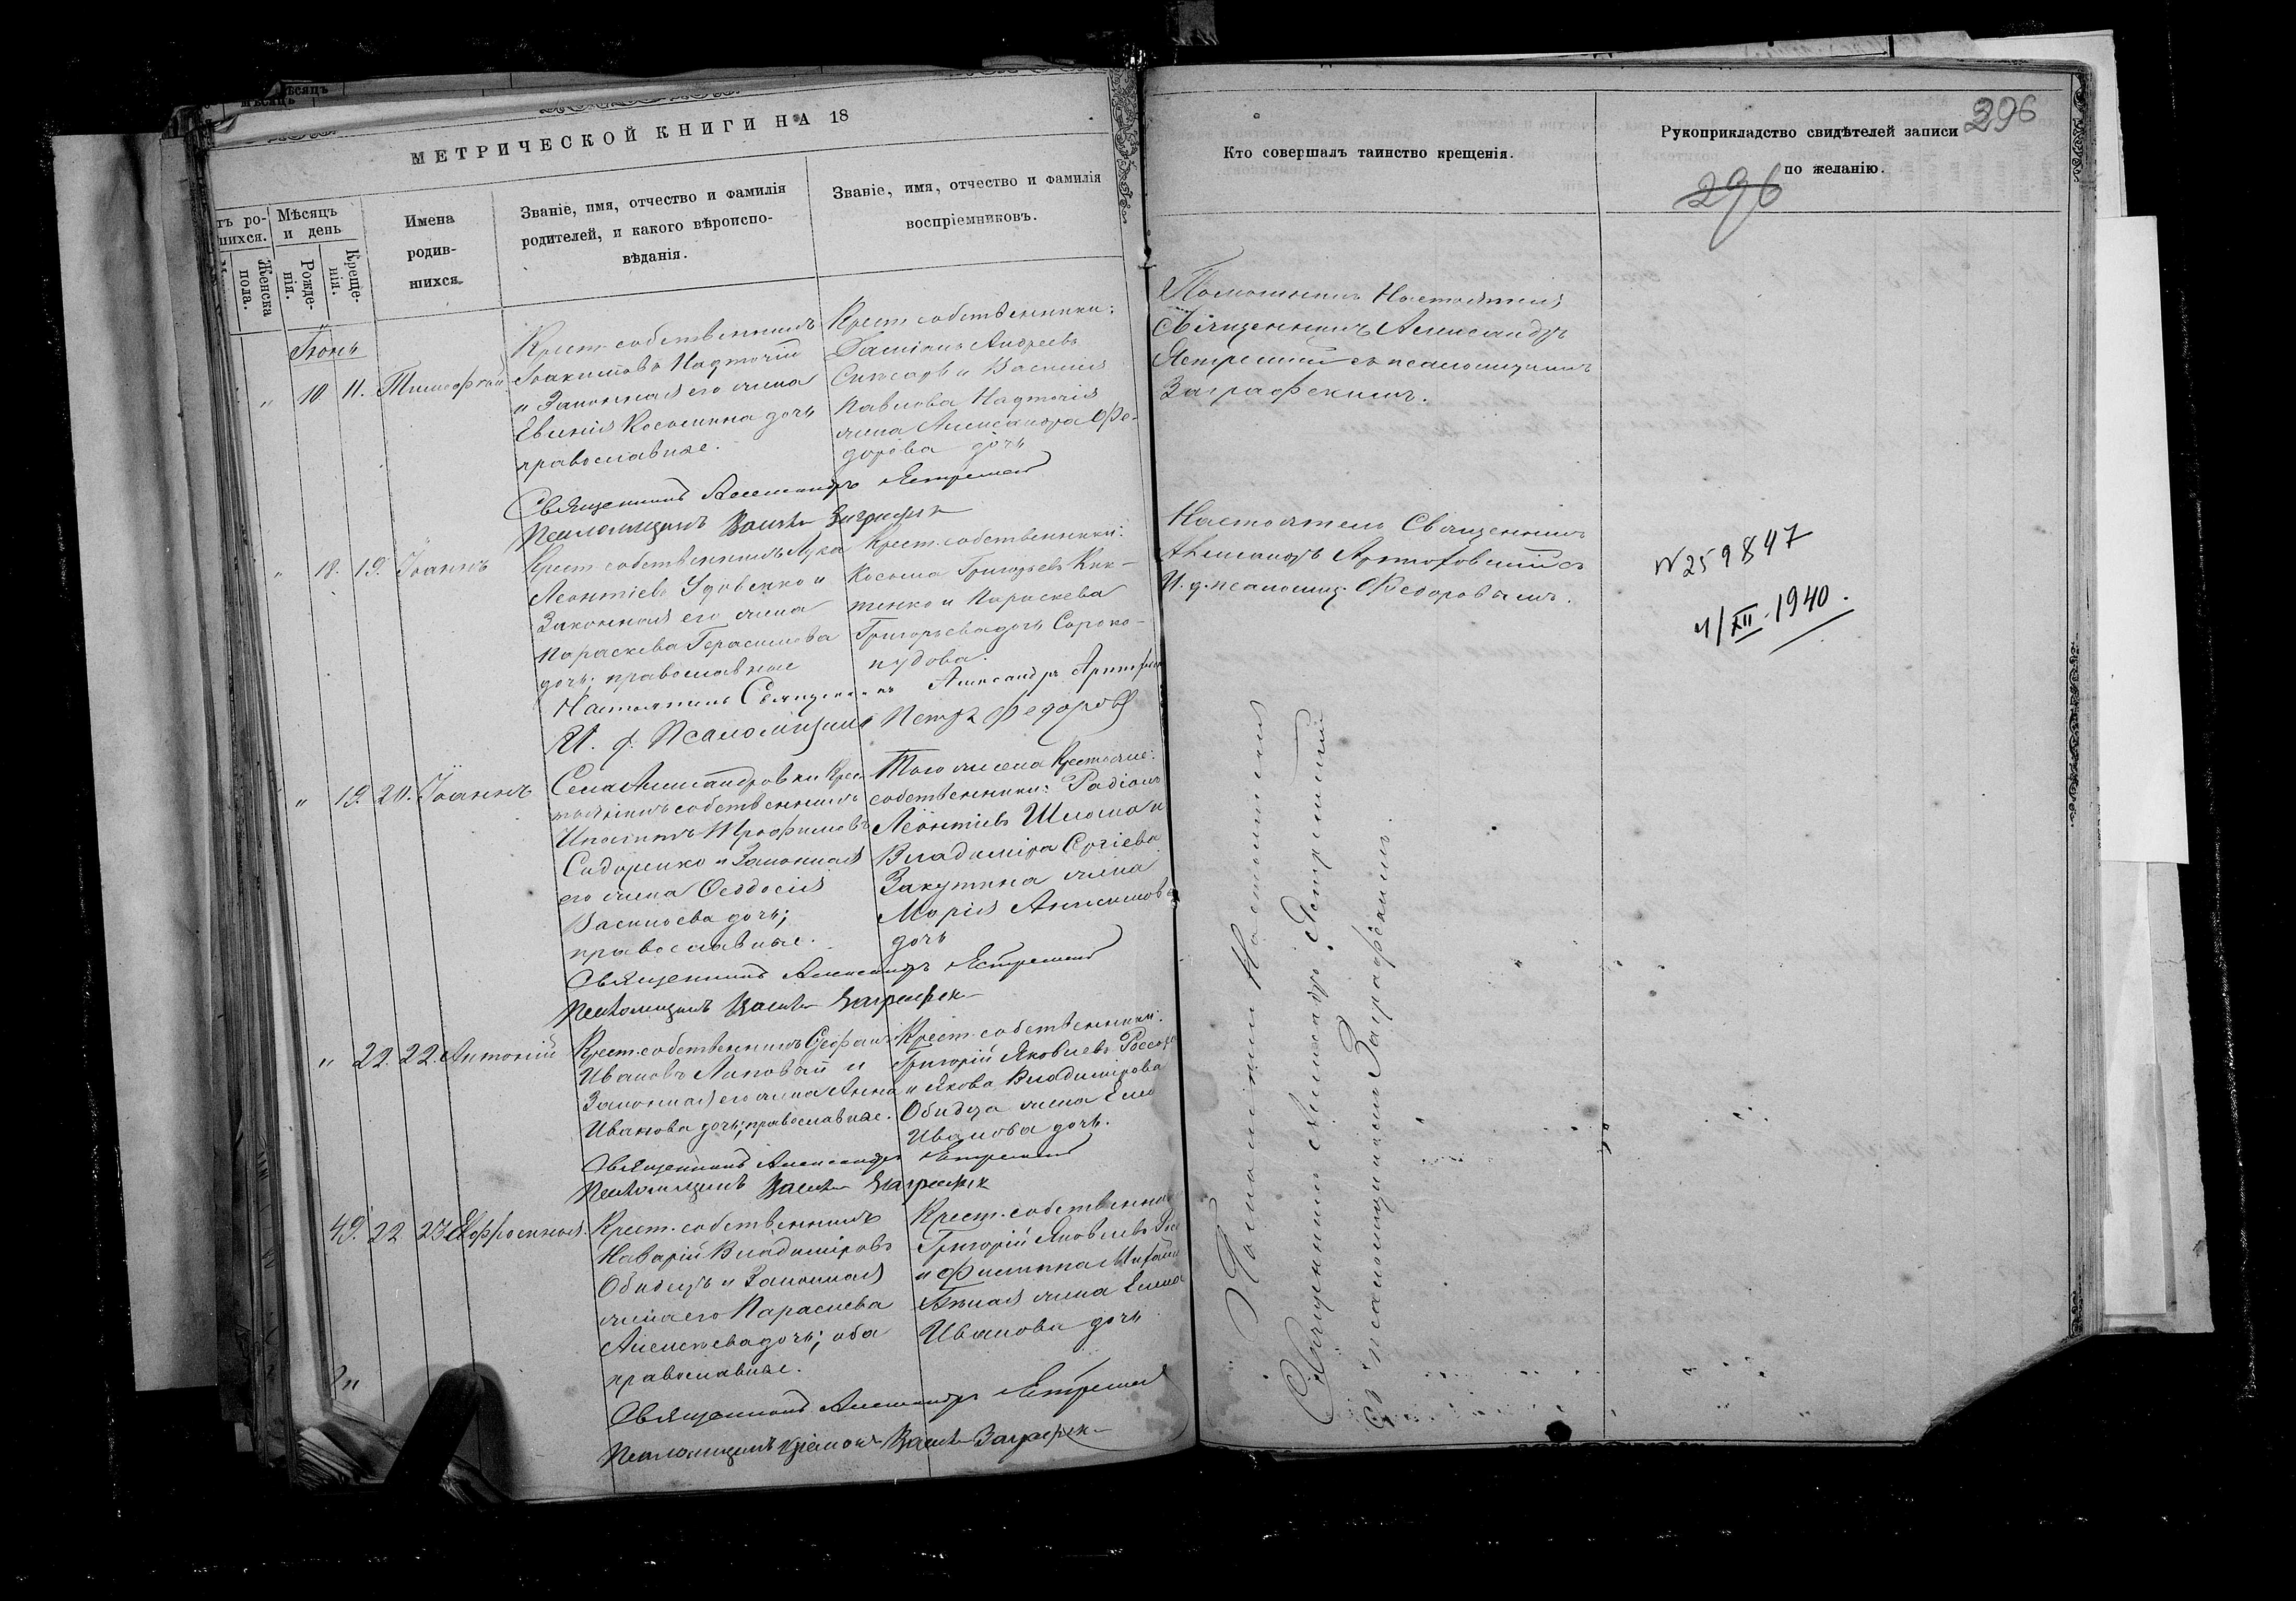 МЕТРИЧЕСКОЙ КНИГИ НА 18
Мѣсяцъ и день
Женска пола.
Рожденія.
Крещенія.
Имена родившихся.
Званіе, имя, отчество и фамилія родителей, и какого вѣроисповѣданія.
Званіе, имя, отчество и фамилія воспріемниковъ.
Іюнь
" 10 11. Тимофей
Крест. собственникъ
Іоакимовъ Надточій
и Законная его жена
Евгенія Косьмина дочь
православные.
Крест. собственники:
Даміанъ Андреевъ
и Василія
Павлова Надточія
жена Александра Фе-
дорова дочь
Священникъ Александръ Ястремскій
Псаломщикъ Василій Заграфск
" 18. 19. Іоаннъ
Крест. собственникъ Лука
Леонтіевъ Удовенко и
Законная его жена
Параскева Герасимова
дочь; православные
Крест. собственники:
Косьма Григорьевъ Кик-
тенко и Параскева
Григорьева дочь Сороко-
пудова.
Настоятель Священникъ Александръ
И. д. Псаломщика Петръ Федоровъ
" 19. 20. Іоаннъ
Села Александровки Крес
тьянинъ собственникъ
Ипатій Трофимовъ
Сидоренко и Законная
его жена Феодосія
Васильева дочь;
православные.
Того же села Крестьяне
собственники: Радіонъ
Леонтіевъ Шломан
Владиміра Сергіева
Закутина жена
Марія
дочь
Священникъ Александръ Ястремскій
Псаломщикъ Василій Заграфск
" 22. 22. Антоній
Крест. собственникъ Стефанъ
Ивановъ Липовый и
Законная его жена Анна
Иванова дочь; православные.
Крест. собственники:
Григорій Яковлевъ
и Якова Владимірова
Обидца жена
Иванова дочь.
Священникъ Александръ Ястремскій
Псаломщикъ Василій Заграфск
49. 22 23 Евфросинія.
Крест. собственникъ
Назарій Владиміровъ
Обидецъ и Законная
жена его Параскева
Алексѣева дочь; оба
православные.
Крест. собственник
Григорій Яковлевъ
и Филиппа
жена
Иванова дочь
Священникъ Александръ Ястремскій
Псаломщикъ Василій Заграфск
Кто совершалъ таинство крещенія.
Рукоприкладство свидѣтелей записи
по желанію.
296
296
Помощникъ Настоятеля
Священникъ Александръ
Ястремскій съ псаломщикомъ
Заграфскимъ.
Настоятель Священникъ
Александръ Артюховскій съ
И. д. псаломщ. Федоровымъ.
N 259847
4/XII.1940.
Помощникъ Настоятеля
Священникъ Александръ Ястремскій
съ псаломщикомъ Заграфскимъ.